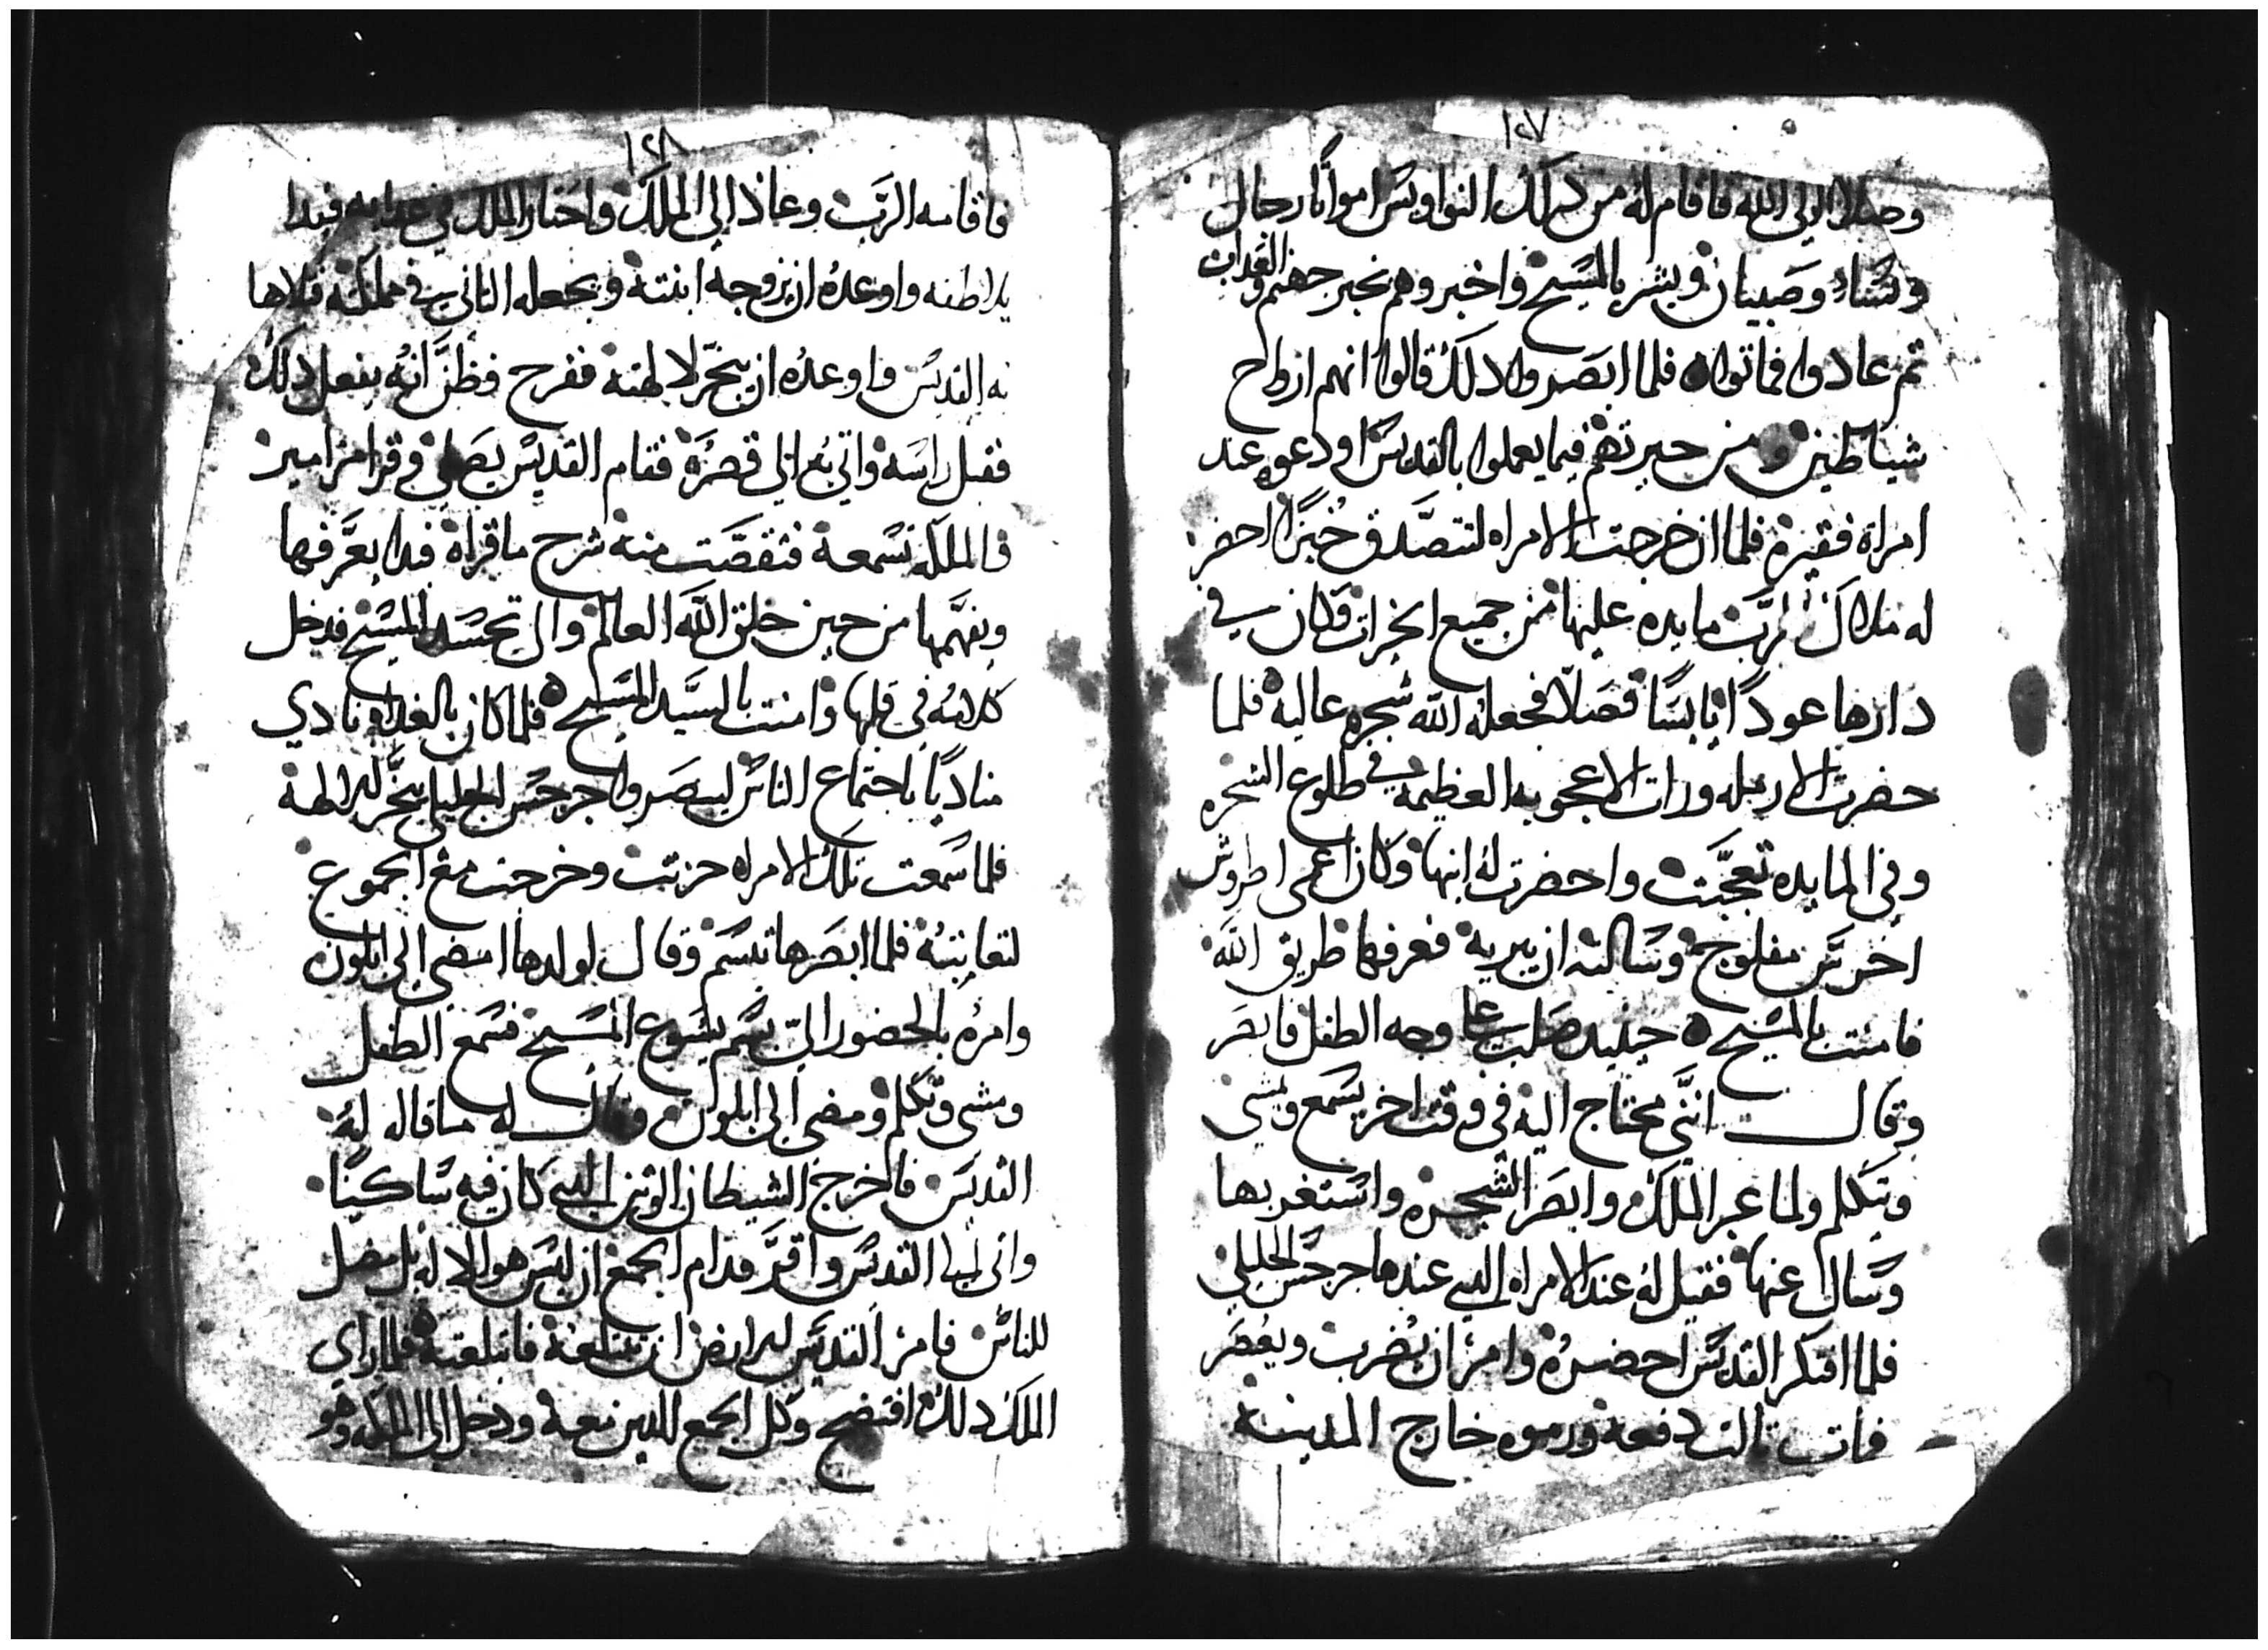 ١٢٧
وصلا الي الله فاقام له من دلك النواويس امواتا رجال
ونساء وصبيان وبشر بالمسيح واخبروهم بخبر جهنم والعداب
تم عادوا فماتوا فلما ابصروا دلك قالوا انهم ارواح
شياطين ومن حيرتهم فيما يعملوا بالقديس اودعوه عند
امراة فقيره فلما ان خرجت الامراه لتتصدق خبزا احضر
له ملاك الرب مايده عليها من جميع الخيرات وكان في
دارها عودا يابسا فصلا فجعله الله شجره عاليه فلما
حضرت الارمله ورات الاعجوبه العظيمه في طلوع الشجره
وفي المايده تعجبت واحضرت له ابنها وكان اعمى اطروش
اخرس مفلوج وسالته ان يبريه فعرفها طريق الله
فامنت بالمسيح حينيد صلب علي وجه الطفل فابصر
وقال انني محتاج اليه في وقت اخر يسمع ويمشي
ويتكلم ولما عبر الملك وابصر الشجره واستغربها
وسال عنها فقيل له عند الامراه التي عندها جرجس الجليلي
فلما افتكر القديس احضره وامر ان يضرب ويعصر
فمات تالت دفعه ورموه خارج المدينه
١٢٨
فاقامه الرب وعاد الي الملك واحتار الملك في عدابه فبدا
يلاطفه واوعده ان يزوجه ابنته ويجعله التاني في مملكته فلاها
به القديس واوعده ان يبخر لالهته ففرح وظن انه يفعل دلك
فقبل راسه واتي به الي قصره فقام القديس يصلي وقرا مزامير
فالملكه تسمعه فتقصت منه شرح ما قراه فبدا يعرفها
ويفهمها من حين خلق الله العالم والي تجسد المسيح فدخل
كلامه في قلبها وامنت بالسيد المسيح فلما كان بالغداه نادي
مناديا باجتماع الناس ليبصروا جرجس الجليلي يبخر للالهه
فلما سمعت تلك الامراه حزنت وخرجت مع الجموع
لتعاينه فلما ابصرها تبسم وقال لولدها امضي الي ابلون
وامره بالحضور الي بسم يسوع المسيح فسمع الطفل
ومشي وتكلم ومضي الي ابلون وقال له ما قاله له
القديس فاخرج الشيطان الوتن الدي كان فيه ساكنا
واتي لهدا القديس واقر قدام الجمع ان ليس هو الاله بل مضل
للناس فامر القديس للارض ان تبتلعه فابتلعته فلما راي
الملك دلك افتضح وكل الجمع الدين معه ودخل الي الملكه وهو